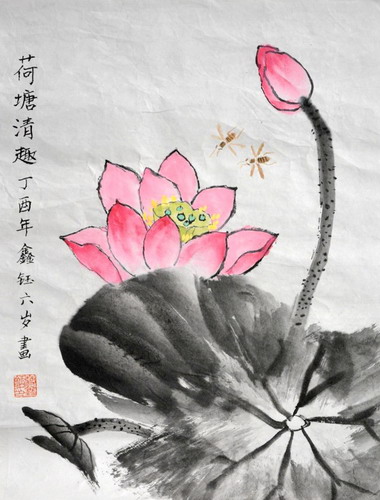 荷塘清趣丁酉年鑫钰六岁畫